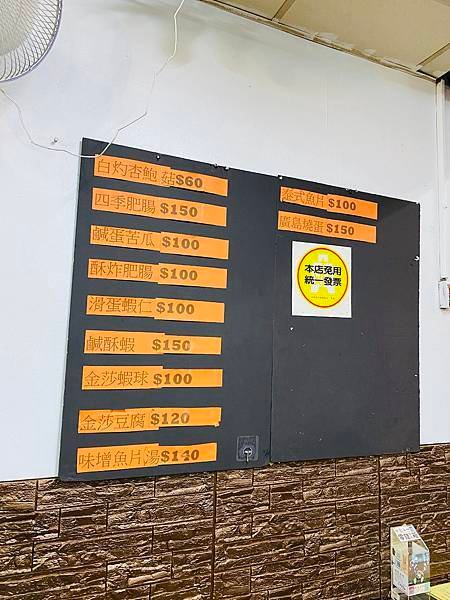 白灼杏鮑菇$60
四季肥腸$150
鹹蛋苦瓜$100
酥炸肥腸$100
滑蛋蝦仁$100
鹹酥蝦 $150
金莎蝦球$100
金莎豆腐$120
味增魚片湯$140
泰式魚片$100
廣島燒蛋$150
本店免用
統一發票